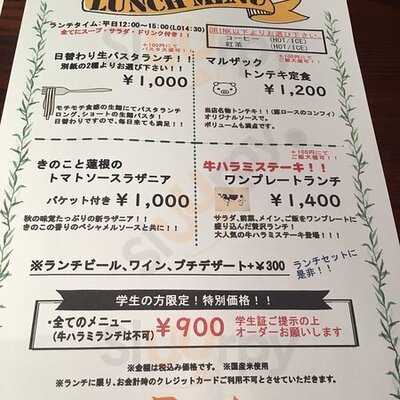 LUNCH MENU
ランチタイム:平日12:00~15:00(LO14:30)
全てにスープ・サラダ・ドリンク付き!!
DRINK以下よりお選び下さい。
コーヒー (HOT/ICE)
紅茶 (HOT/ICE)
+100円にて
パスタ大盛り可!!
日替わり生パスタランチ!!
別紙の2種よりお選び下さい!!
¥1,000
モチモチ食感の生麺にてパスタランチ
ロング、ショートの生麺パスタ!
日替わりですので、毎日来ても満足!!
+100円にて
ご飯大盛り可!!
マルザック
トンテキ定食
¥1,200
当店名物トンテキ!!(豚ロースのコンフィ)
オリジナルソースで。
ボリュームも満点です。
きのこと蓮根の
トマトソースラザニア
バケット付き ¥1,000
秋の味覚たっぷりの新ラザニア!!
きのこの香りのベシャメルソースと共に!!
+100円にて
ご飯大盛り可!!
牛ハラミステーキ!!
ワンプレートランチ
¥1,400
サラダ、前菜、メイン、ご飯をワンプレートに
盛り込んだ贅沢ランチ!
大人気の牛ハラミステーキ登場!!!
※ランチビール、ワイン、プチデザート+¥300
ランチセットに
是非!!
学生の方限定!特別価格!!
・全てのメニュー
(牛ハラミランチは不可)
¥900
学生証ご提示の上
オーダーお願いします
※金額は税込み価格です。 ※国産米使用
※ランチに限り、お会計時のクレジットカードご利用不可とさせていただきます。